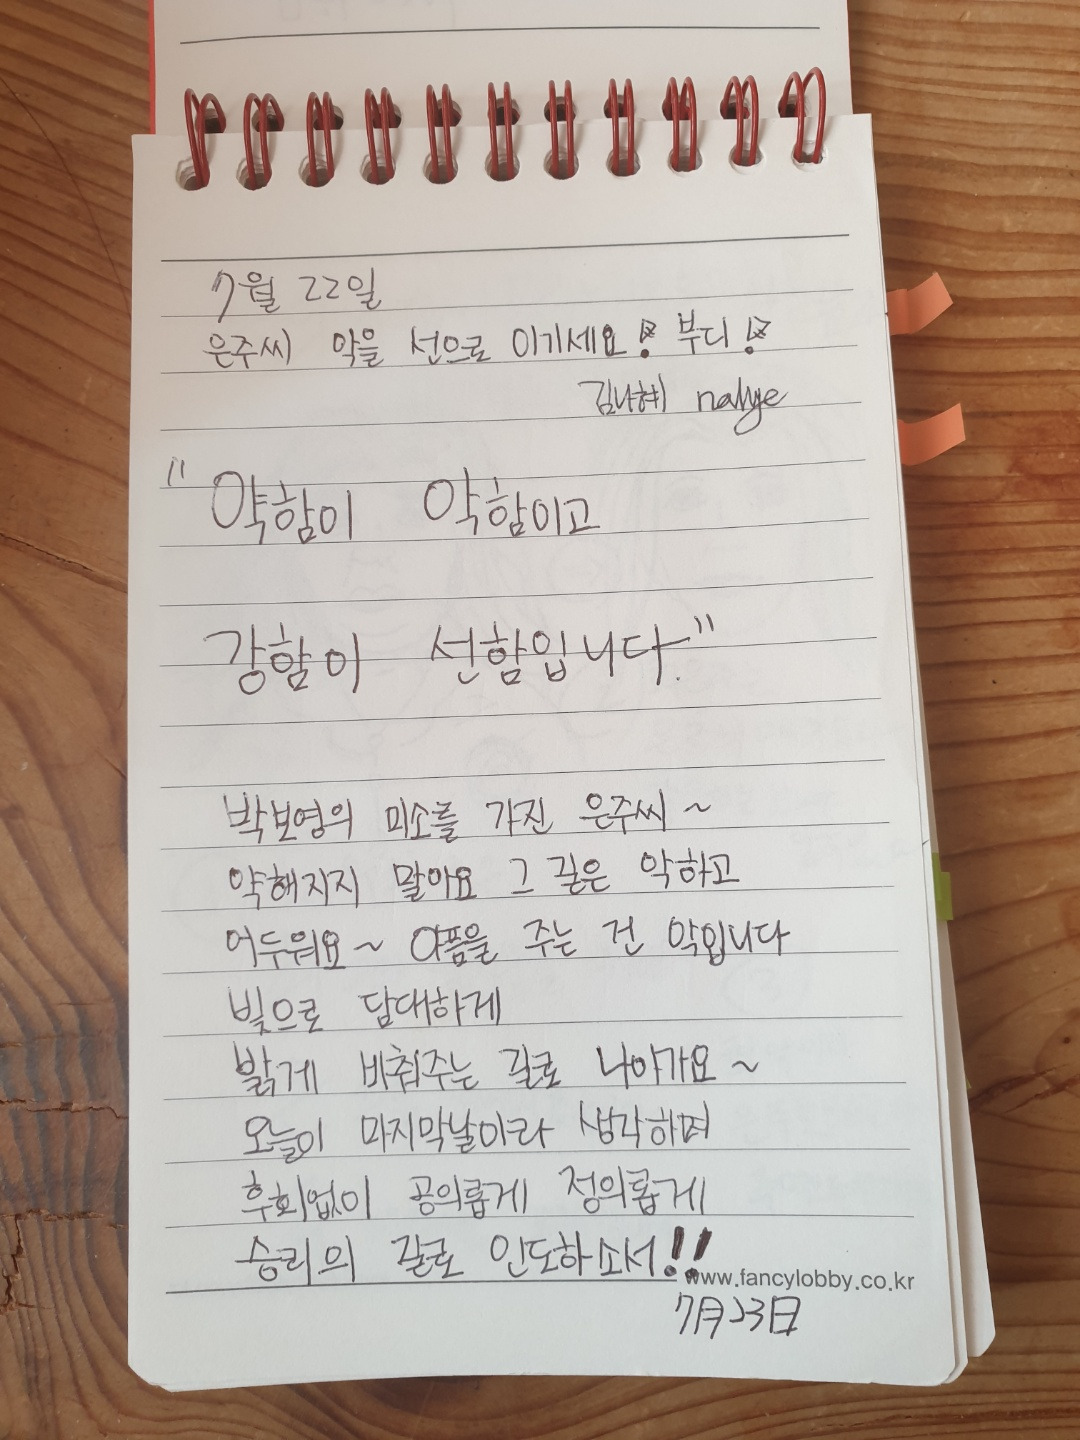 7월 22일
은주씨 악을 선으로 이기세요! 부디!
김나혜 nahye
"약함이 악함이고
강함이 선함입니다."
박보영의 미소를 가진 은주씨~
약해지지 말아요 그 길은 악하고
어두워요~ 아픔을 주는 건 악입니다
빛으로 담대하게
밝게 비춰주는 길로 나아가요~
오늘이 마지막날이라 생각하며
후회없이 공의롭게 정의롭게
승리의 길로 인도하소서!!
www.fancylobby.co.kr
7月23日